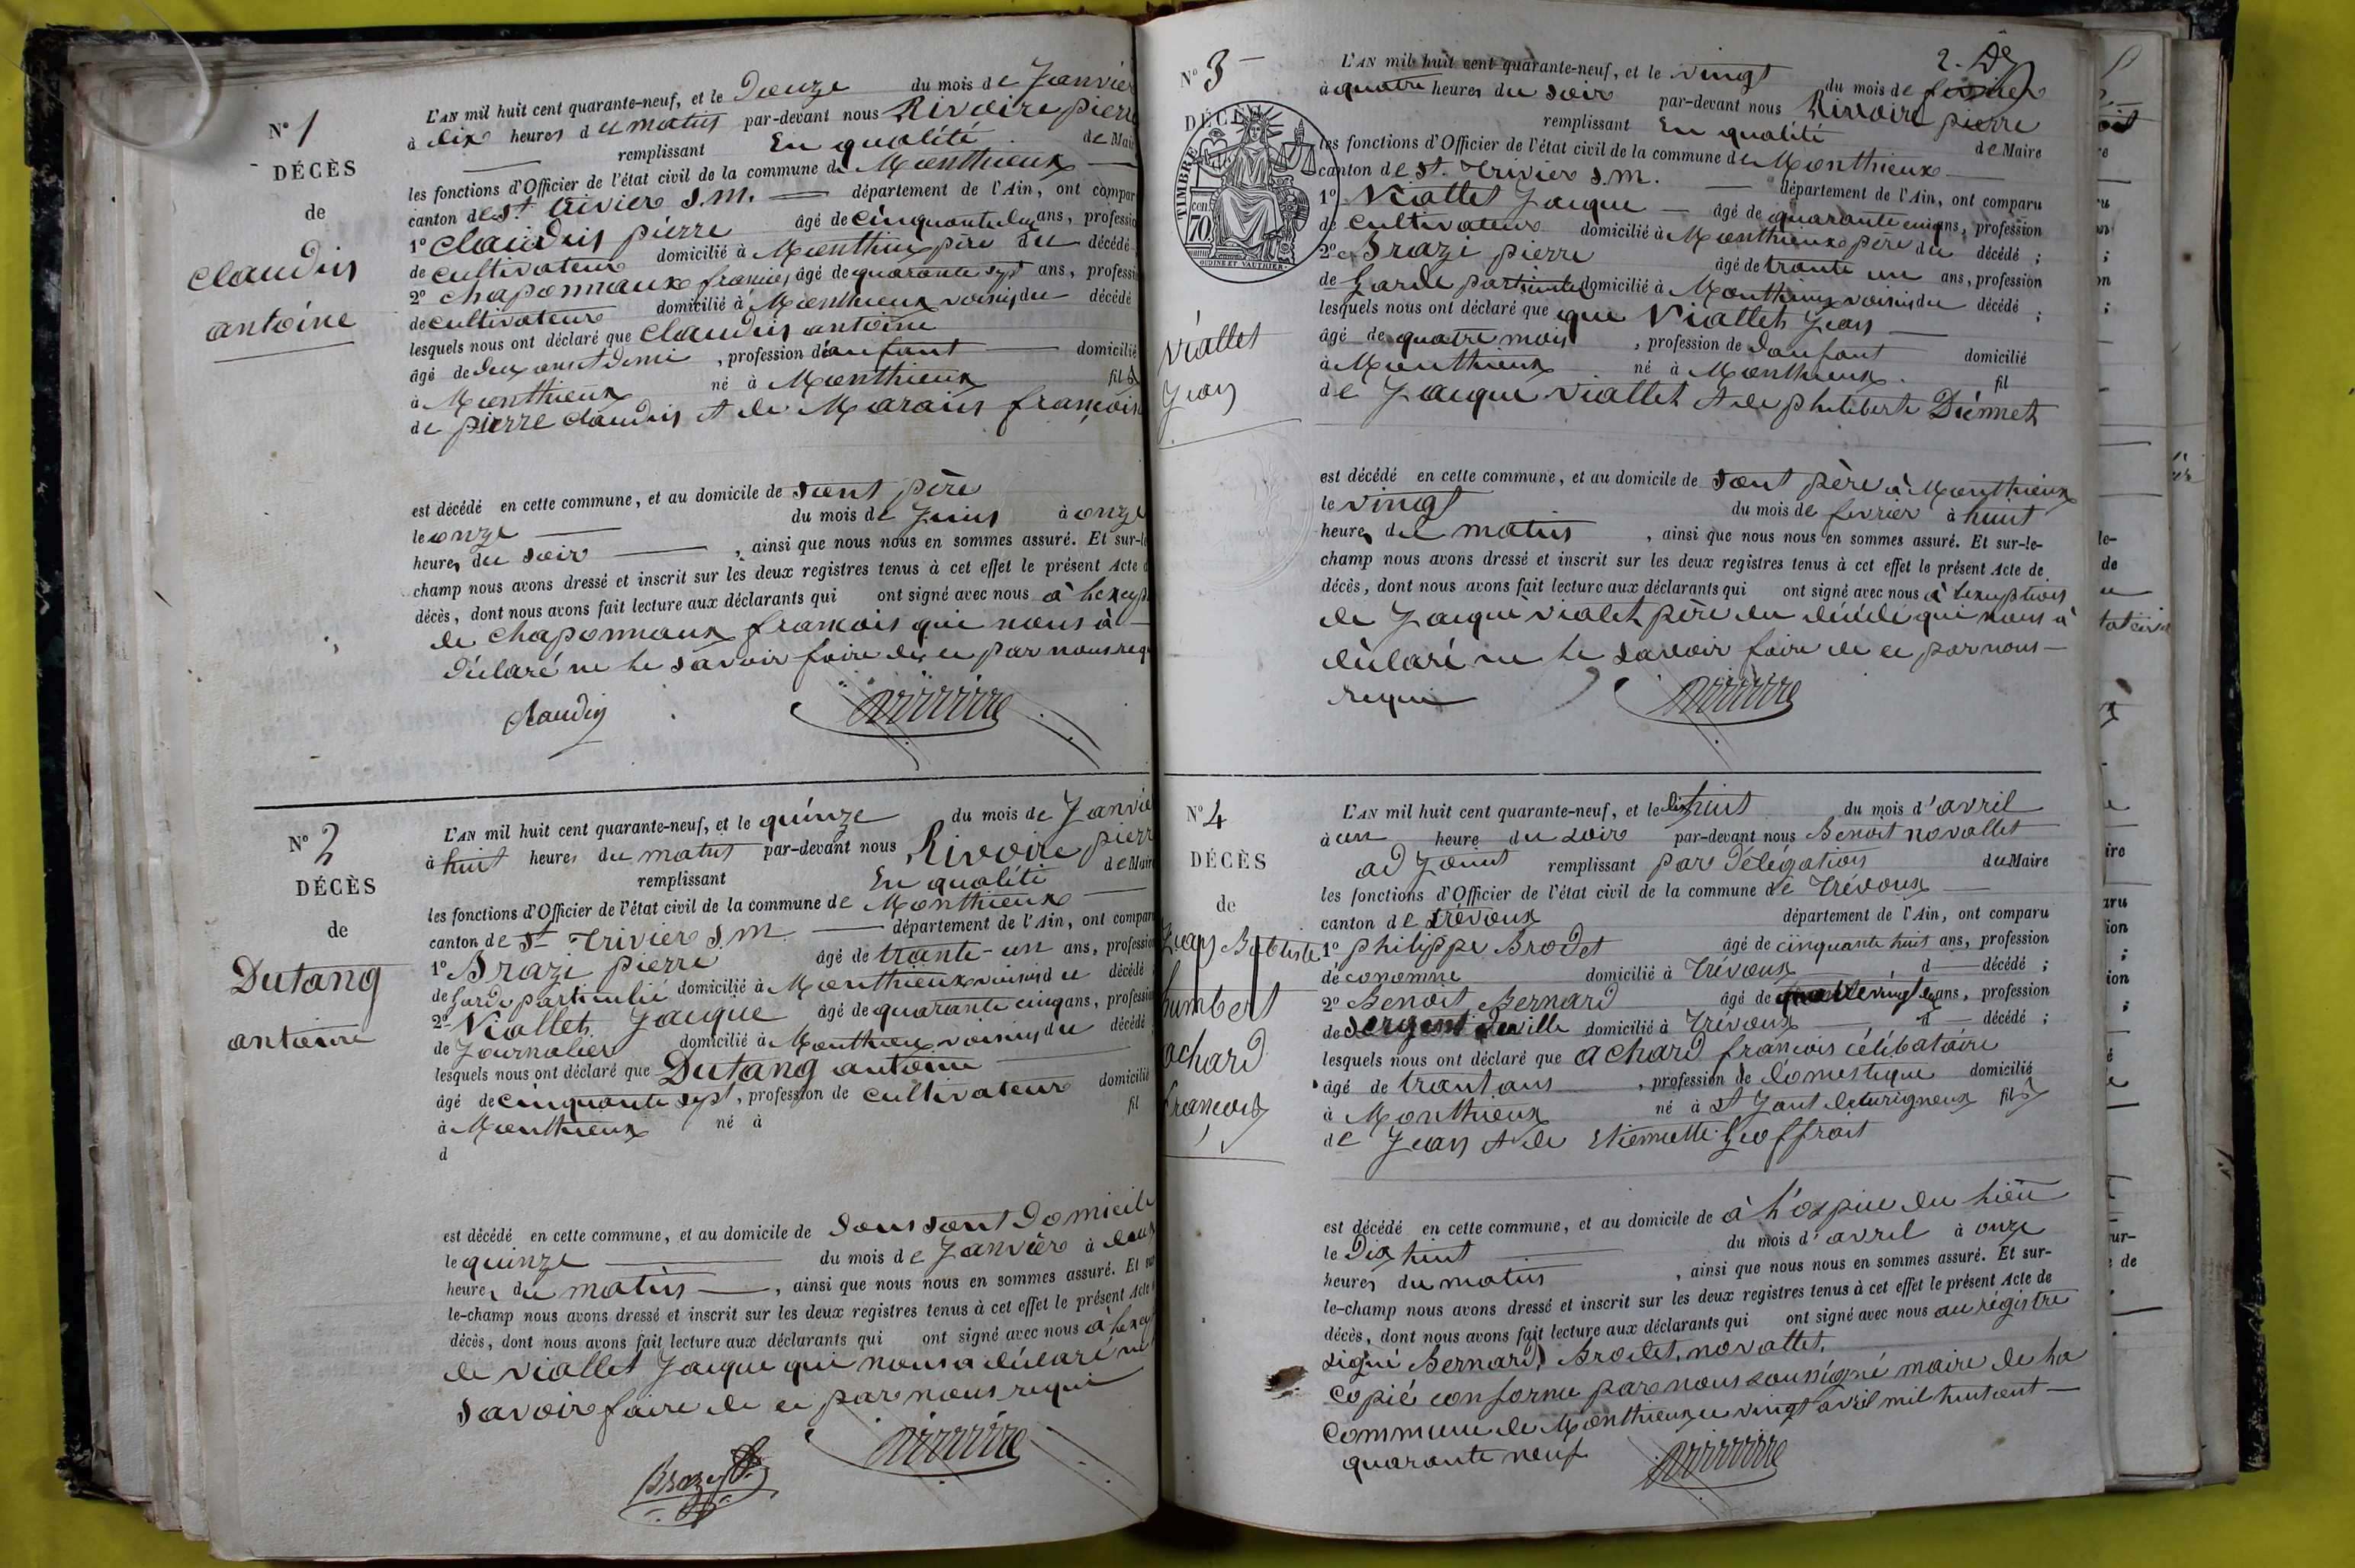 N° 1
DÉCÈS
de
Claudin
antoine
L'AN mil huit cent quarante-neuf, et le Douze du mois de Janvier
à dix heures du matin par-devant nous Rivoire pierre
remplissant En qualité de Maire
les fonctions d'Officier de l'état civil de la commune de Monthieux
canton de St. trivier S.M. département de l'Ain, ont compar
1° Claudin pierre âgé de cinquante ans, professio
de cultivateur domicilié à Monthieux père du décédé
2° chaponnaux francois âgé de quarante sept ans, professi
de cultivateur domicilié à Monthieux voisin du décédé
lesquels nous ont déclaré que Claudin antoine
âgé de deux ans et demi, profession d'enfant domicilié
à Monthieux né à Monthieux fils
de pierre Claudin et de Marais francoise
est décédé en cette commune, et au domicile de sont père
le onze du mois de à onze
heures du soir, ainsi que nous nous en sommes assuré. Et sur-le
champ nous avons dressé et inscrit sur les deux registres tenus à cet effet le présent Acte d
décès, dont nous avons fait lecture aux déclarants qui ont signé avec nous à lexcep
de chaponnaux francois qui nous à
déclaré ne le savoir faire de ce par nous req
Claudin Rivoire
N° 2
DÉCÈS
de
Dutang
antoine
L'AN mil huit cent quarante-neuf, et le quinze du mois de Janvie
à huit heures du matin par-devant nous Rivoire pierr
remplissant En qualité de Maire
les fonctions d'Officier de l'état civil de la commune de Monthieux
canton de St Trivier S.M. département de l'Ain, ont compar
1° Brazi pierre âgé de trante-un ans, profession
de Garde particulié domicilié à Monthieux voisin du décédé
2° Viallet Jacque âgé de quarante cinq ans, professi
de Journalier domicilié à Monthieux voisin du décédé
lesquels nous ont déclaré que Dutang antoine
âgé de cinquante sept, profession de cultivateur domicilié
à Monthieux né à fil
d
est décédé en cette commune, et au domicile de dans sont Domicile
le quinze du mois de Janvier à deux
heures du matin, ainsi que nous nous en sommes assuré. Et sur
le-champ nous avons dressé et inscrit sur les deux registres tenus à cet effet le présent Acte
décès, dont nous avons fait lecture aux déclarants qui ont signé avec nous à lexcep
de Viallet Jacque qui nous a déclaré ne
savoir faire de ce par nous requi
Brazy Rivoire
2.
N° 3
DÉCÈS
TIMBRE
cen 70
OUDINE ET VAUTHIER
Viallet
Jean
L'AN mil huit cent quarante-neuf, et le vingt du mois de fevrier
à quatre heures du soir par-devant nous Rivoire pierre
remplissant En qualité de Maire
les fonctions d'Officier de l'état civil de la commune de Monthieux
canton de St. Trivier S.M. département de l'Ain, ont comparu
1° Viallet Jacque âgé de quarante cinq ans, profession
de cultivateur domicilié à Monthieux père du décédé ;
2° Brazi pierre âgé de trante un ans, profession
de Garde particulié domicilié à Monthieux voisin du décédé ;
lesquels nous ont déclaré que que Viallet Jean
âgé de quatre mois, profession de danfant domicilié
à Monthieux né à Monthieux fil
de Jacque Viallet et de philiberte Diénnet
est décédé en cette commune, et au domicile de sont père à Monthieux
le vingt du mois de fevrier à huit
heures du matin, ainsi que nous nous en sommes assuré. Et sur-le-
champ nous avons dressé et inscrit sur les deux registres tenus à cet effet le présent Acte de
décès, dont nous avons fait lecture aux déclarants qui ont signé avec nous à lexeption
de Jacque vialet père du décédé qui nous à
déclaré ne le savoir faire de ce par nous
requi Rivoire
N° 4
DÉCÈS
de
Jean Babtiste
humbert
achard
francois
L'AN mil huit cent quarante-neuf, et le dix huit du mois d'avril
à un heure du soir par-devant nous Benoit novallet
ad Joint remplissant par délégation du Maire
les fonctions d'Officier de l'état civil de la commune de Trévoux
canton de trévoux département de l'Ain, ont comparu
1° philippe Brodet âgé de cinquante huit ans, profession
de conomme domicilié à Trévoux d décédé ;
2° Benoit Bernard âgé de ans, profession
de sergent de ville domicilié à Trévoux d décédé ;
lesquels nous ont déclaré que achard francois célibataire
âgé de trant ans, profession de domestique domicilié
à Monthieux né à St Jant fils
de Jean et de Etiennette Geoffrait
est décédé en cette commune, et au domicile de à l'ospice du lieu
le Dix huit du mois d'avril à onze
heures du matin, ainsi que nous nous en sommes assuré. Et sur-
le-champ nous avons dressé et inscrit sur les deux registres tenus à cet effet le présent Acte de
décès, dont nous avons fait lecture aux déclarants qui ont signé avec nous au régistre
signé Bernard, Brodet, novallet.
Copié conforme par nous soussigné maire de la
Commune de Monthieux ce vingt avril mil huit cent
quarante neuf Rivoire